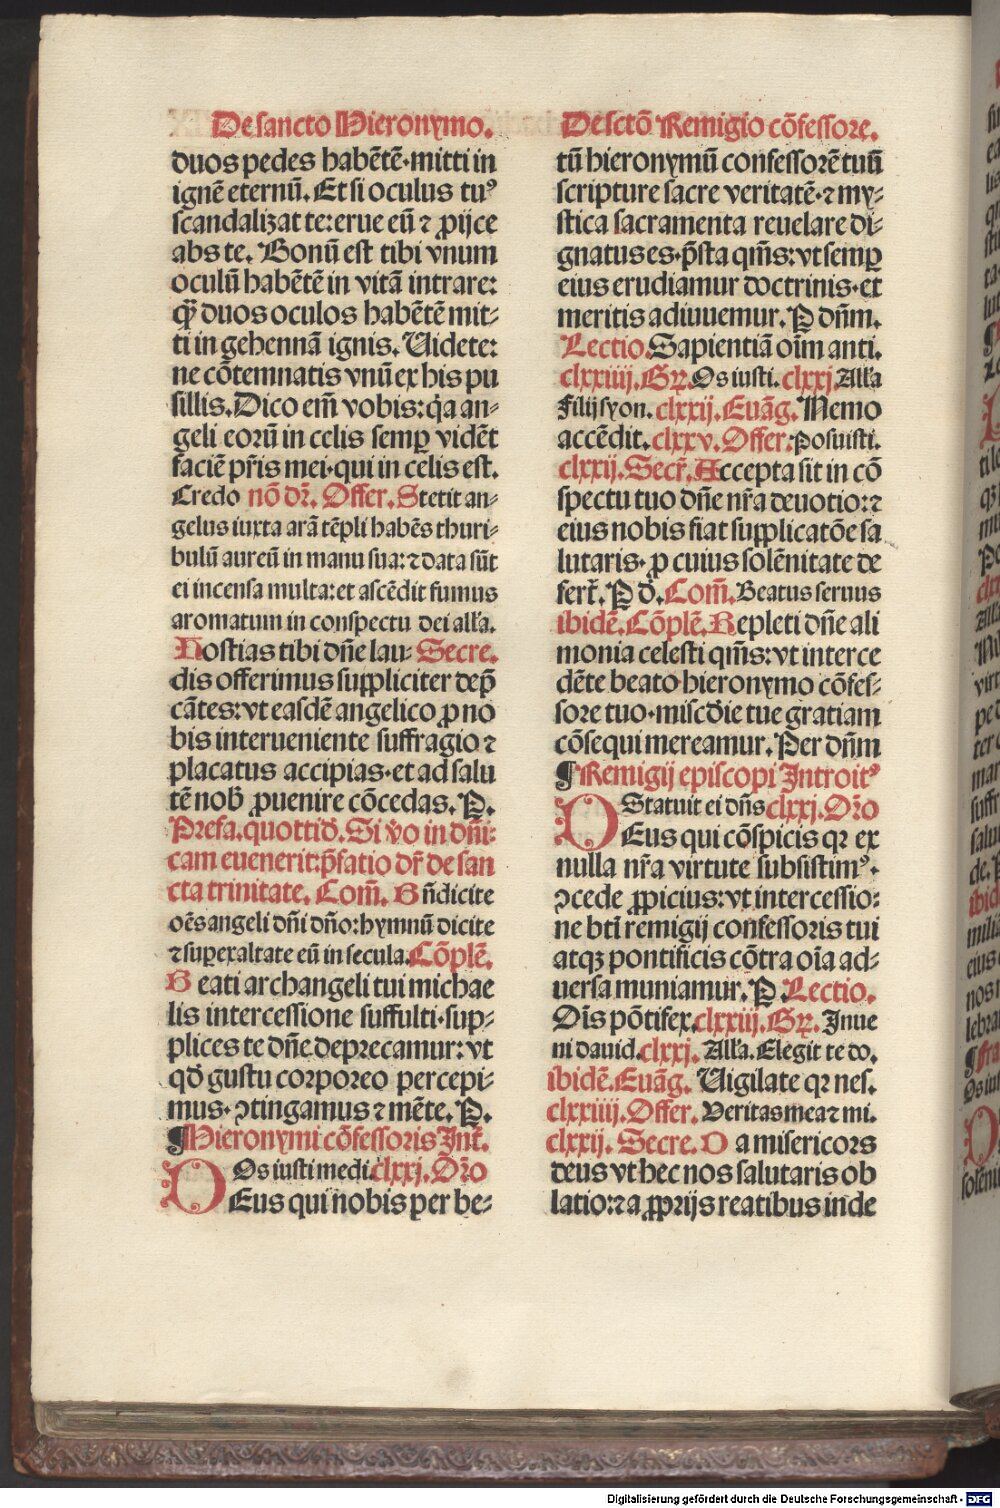 De sancto Hieronymo.
duos pedes habētē·mitti in
ignē eternū. Et si oculus tuꝰ
scandalizat te: erue eū ⁊ ꝓijce
abs te. Bonū est tibi vnum
oculū habētē in vitā intrare:
qꝫ duos oculos habētē mit⸗
ti in gehennā ignis. Uidete:
ne cōtemnatis vnū ex his pu
sillis. Dico em̄ vobis: qa an⸗
geli eorū in celis semꝑ vidēt
faciē pr̄is mei·qui in celis est.
Credo nō dr̄. Offer. Stetit an⸗
gelus iuxta arā tēpli habēs thuri⸗
bulū aureū in manu sua: ⁊ data sūt
ei incensa multa: et ascēdit fumus
aromatum in conspectu dei all'a.
Hostias tibi dn̄e lau⸗ Secre.
dis offerimus suppliciter dep̄
cātes: vt easdē angelico ꝓ no
bis interueniente suffragio ⁊
placatus accipias·et ad salu
tē nob̄ ꝓuenire cōcedas. P.
Prefa. quottid̄. Si v̄o in dn̄i⸗
cam euenerit: p̄fatio dr̄ de san
cta trinitate. Com̄. Bn̄dicite
oēs angeli dn̄i dn̄o: hymnū dicite
⁊ superexaltate eū in secula. Cōplē.
Beati archangeli tui michae
lis intercessione suffulti·sup⸗
plices te dn̄e deprecamur: vt
qd̄ gustu corporeo percepi⸗
mus·ꝯtingamus ⁊ mēte. P.
¶Hieronymi cōfessoris Int̄.
Os iusti medi. clxxj. Or̄o
DEus qui nobis per be⸗
De sctō Remigio cōfessore.
tū hieronymū confessorē tuū
scripture sacre veritatē·⁊ my⸗
stica sacramenta reuelare di⸗
gnatus es·p̄sta qm̄s: vt semꝑ
eius erudiamur doctrinis·et
meritis adiuuemur. P dn̄m.
Lectio. Sapientiā oīm anti.
clxxiiij. Gr̄. Os iusti. clxxj. All'a
Filij syon. clxxij. Euāg. Nemo
accēdit. clxxv. Offer. Posuisti.
clxxij. Secr̄. Accepta sit in cō
spectu tuo dn̄e nr̄a deuotio: ⁊
eius nobis fiat supplicatōe sa
lutaris·ꝓ cuius solēnitate de
fert̄. P d̄. Com̄. Beatus seruus
ibidē. Cōplē. Repleti dn̄e ali
monia celesti qm̄s: vt interce
dēte beato hieronymo cōfes⸗
sore tuo·misc̄die tue gratiam
cōsequi mereamur. Per dn̄m
¶Remigij episcopi Introitꝰ
Statuit ei dn̄s clxxj. Or̄o
DEus qui cōspicis qr ex
nulla nr̄a virtute subsistimꝰ·
ꝯcede ꝓpicius: vt intercessio⸗
ne bt̄i remigij confessoris tui
atqꝫ pontificis cōtra oīa ad⸗
uersa muniamur. P. Lectio.
Dīs pōtifex. clxxiij. Gr̄. Inue
ni dauid. clxxj. All'a. Elegit te do.
ibidē. Euāg. Uigilate qr nes.
clxxiiij. Offer. Veritas mea ⁊ mi.
clxxij. Secre. Da misericors
deus vt hec nos salutaris ob
latio: ⁊ a ꝓprijs reatibus inde
Digitalisierung gefördert durch die Deutsche Forschungsgemeinschaft - DFG